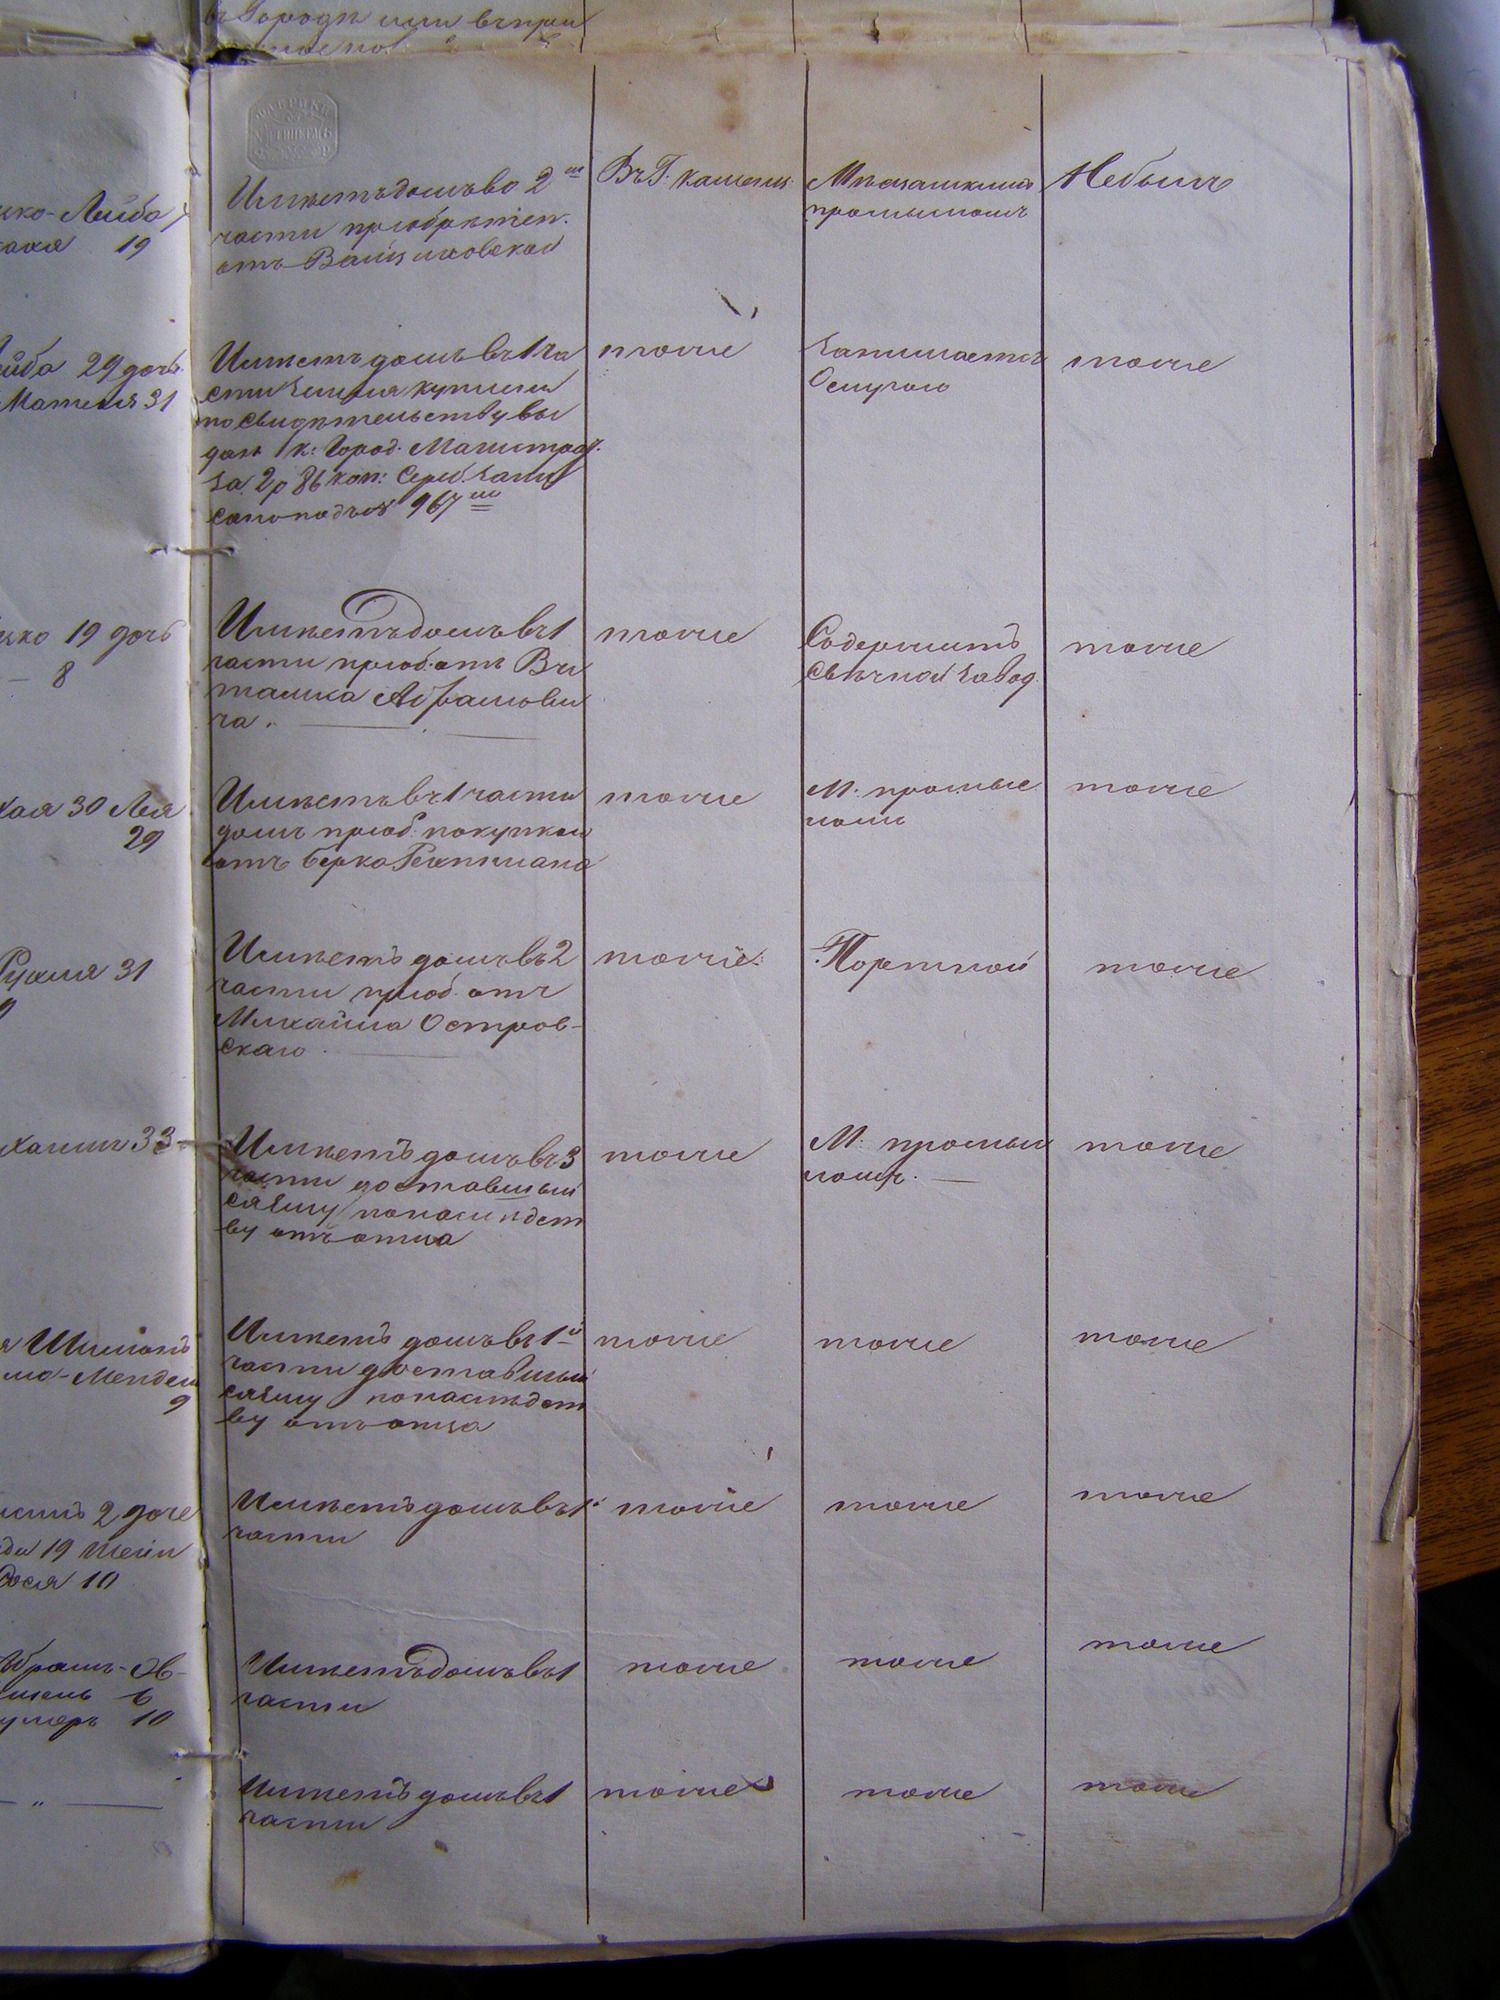 въ Городѣ или въ при
ѵко-Лейба
19
Имѣетъ домъ во 2й
части пріобрѣтен.
отъ
Въ Г: Каменц:
Мѣщанскимъ
промысломъ
Небылъ
29 дочь
31
Имѣетъ домъ въ 1 ча
сти
по свидѣтельству вы
дан К: Город. Магистрат.
за 2 р 86 коп: Сереб.
967
тоже
занимается
тоже
19 дочь
8
Имѣетъ домъ въ 1
части пріоб. отъ
Абрамови
ча.
тоже
Содержитъ
свѣчной завод.
тоже
30 Лея
29
Имѣетъ въ 1 части
домъ пріоб: покупкою
отъ Берка
тоже
М. промыс
ломъ
тоже
Рухля 31
Имѣетъ домъ въ 2
части пріоб. отъ
Михайла Остров-
скаго
тоже:
Портной
тоже
Хаимъ 33
Имѣетъ домъ въ 3
части доставшый
ся ему по наслѣдст
ву отъ отца
тоже
М: промыс
ломъ.
тоже
Мендель
9
Имѣетъ домъ въ 1й
части доставшый
ся ему по наслѣдст
ву отъ отца
тоже
тоже
тоже
2 доче
19
10
Имѣетъ домъ въ 1й
части
тоже
тоже
тоже
Абрамъ-
6
10
Имѣетъ домъ въ 1
части
тоже
тоже
тоже
— " —
Имѣетъ домъ въ 1
части
тоже
тоже
тоже